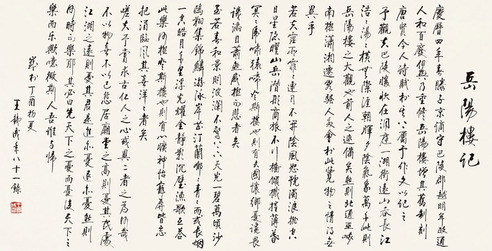 岳陽樓記
慶曆四年春滕子京謫守巴陵郡越明年政通
人和百廢俱興乃重修岳陽樓增其舊制刻
唐賢今人詩賦於其上屬予作文以記之
予觀夫巴陵勝狀在洞庭一湖銜遠山吞長江
浩浩湯湯橫無際涯朝暉夕陰氣象萬千此則
岳陽樓之大觀也前人之述備矣然則北通巫峽
南極瀟湘遷客騷人多會於此覽物之情得無
異乎
若夫霪雨霏霏連月不開陰風怒號濁浪排空
日星隱曜山岳潛形商旅不行檣傾楫摧薄暮
冥冥虎嘯猿啼登斯樓也則有去國懷鄉憂讒畏
譏滿目蕭然感極而悲者矣
至若春和景明波瀾不驚上下天光一碧萬頃沙
鷗翔集錦鱗游泳岸芷汀蘭郁郁青青而或長煙
一空皓月千里浮光躍金靜影沉璧漁歌互答
此樂何極登斯樓也則有心曠神怡寵辱皆忘
把酒臨風其喜洋洋者矣
嗟夫予嘗求古仁人之心或異二者之為何哉
不以物喜不以己悲居廟堂之高則憂其民處
江湖之遠則憂其君是進亦憂退亦憂然則
何時而樂耶其必曰先天下之憂而憂後天下之
樂而樂歟噫微斯人吾誰與歸
歲於丁酉初夏
王 八十一